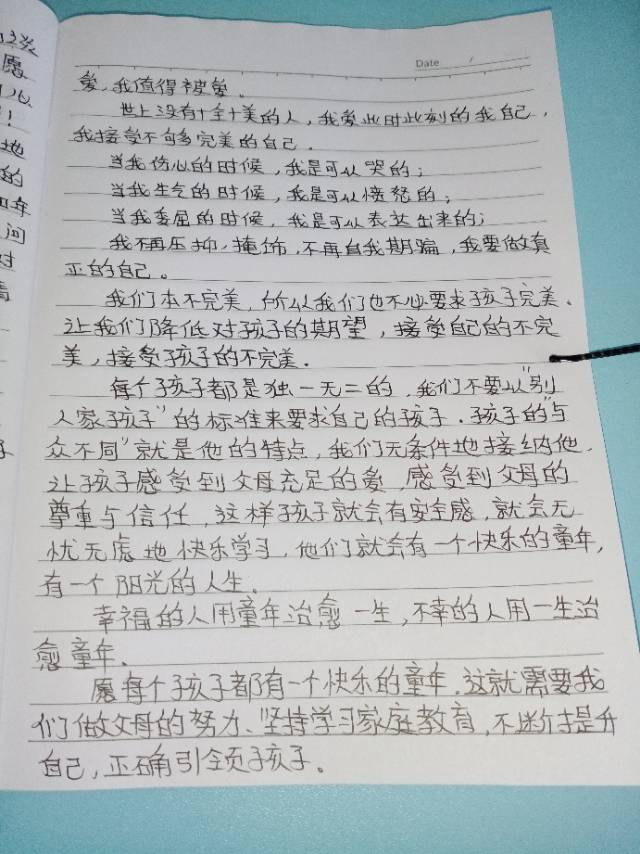 Date /
爱，我值得被爱。
世上没有十全十美的人，我爱此时此刻的我自己，
我接受不够完美的自己。
当我伤心的时候，我是可以哭的；
当我生气的时候，我是可以愤怒的；
当我委屈的时候，我是可以表达出来的；
我不再压抑，掩饰，不再自我期骗，我要做真
正的自己。
我们本不完美，所以我们也不必要求孩子完美。
让我们降低对孩子的期望，接受自己的不完
美，接受孩子的不完美。
每个孩子都是独一无二的，我们不要以“别
人家孩子”的标准来要求自己的孩子。孩子的“与
众不同”就是他的特点，我们无条件地接纳他。
让孩子感受到父母充足的爱，感受到父母的
尊重与信任，这样孩子就会有安全感，就会无
忧无虑地快乐学习，他们就会有一个快乐的童年，
有一个阳光的人生。
幸福的人用童年治愈一生，不幸的人用一生治
愈童年。
愿每个孩子都有一个快乐的童年，这就需要我
们做父母的努力、坚持学习家庭教育，不断提升
自己，正确引领孩子。
愿
！
地
的
年
间
对